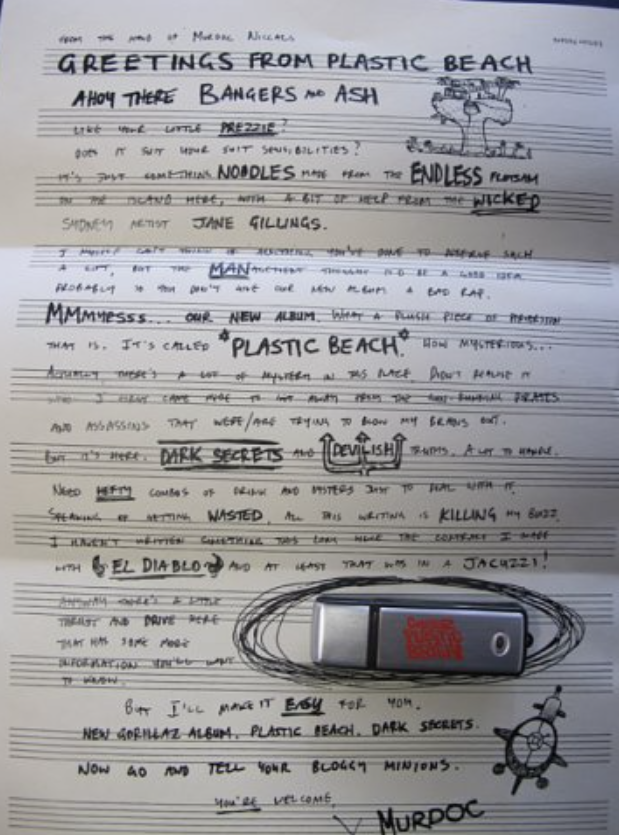 FROM THE HAND OF MURDOC NICCALS
GREETINGS FROM PLASTIC BEACH
AHOY THERE BANGERS AND ASH
LIKE YOUR LITTLE PREZZIE?
DOES IT SUIT YOUR SUIT SENSIBILITIES?
IT'S JUST SOMETHING NOODLES MADE FROM THE ENDLESS FLOTSAM
ON THE ISLAND HERE, WITH A BIT OF HELP FROM THE WICKED
SYDNEY ARTIST JANE GILLINGS.
I MYSELF CAN'T THINK OF ANYTHING YOU'VE DONE TO DESERVE SUCH
A GIFT, BUT THE MANAGEMENT THOUGHT IT'D BE A GOOD IDEA
PROBABLY SO YOU DON'T GIVE OUR NEW ALBUM A BAD RAP.
MMMMYESSS... OUR NEW ALBUM. WHAT A PLUSH PIECE OF PERVERSION
THAT IS. IT'S CALLED *PLASTIC BEACH.* HOW MYSTERIOUS...
ACTUALLY THERE'S A LOT OF MYSTERY IN THIS PLACE. DIDN'T REALISE IT
WHEN I FIRST CAME HERE TO GET AWAY FROM THE GUN-RUNNING PIRATES
AND ASSASSINS THAT WERE/ARE TRYING TO BLOW MY BRAINS OUT.
BUT IT'S HERE. DARK SECRETS AND DEVILISH TRUTHS. A LOT TO HANDLE.
NEED HEFTY COMBOS OF DRINK AND OYSTERS JUST TO DEAL WITH IT.
SPEAKING OF GETTING WASTED, ALL THIS WRITING IS KILLING MY BUZZ.
I HAVEN'T WRITTEN SOMETHING THIS LONG SINCE THE CONTRACT I MADE
WITH EL DIABLO AND AT LEAST THAT WAS IN A JACUZZI!
ANYWAY THERE'S A LITTLE
THRUST AND DRIVE HERE
THAT HAS SOME MORE
INFORMATION YOU'LL WANT
TO KNOW.
GORILLAZ
PLASTIC
BEACH
BUT I'LL MAKE IT EASY FOR YOU.
NEW GORILLAZ ALBUM. PLASTIC BEACH. DARK SECRETS.
NOW GO AND TELL YOUR BLOGGY MINIONS.
YOU'RE WELCOME,
MURDOC